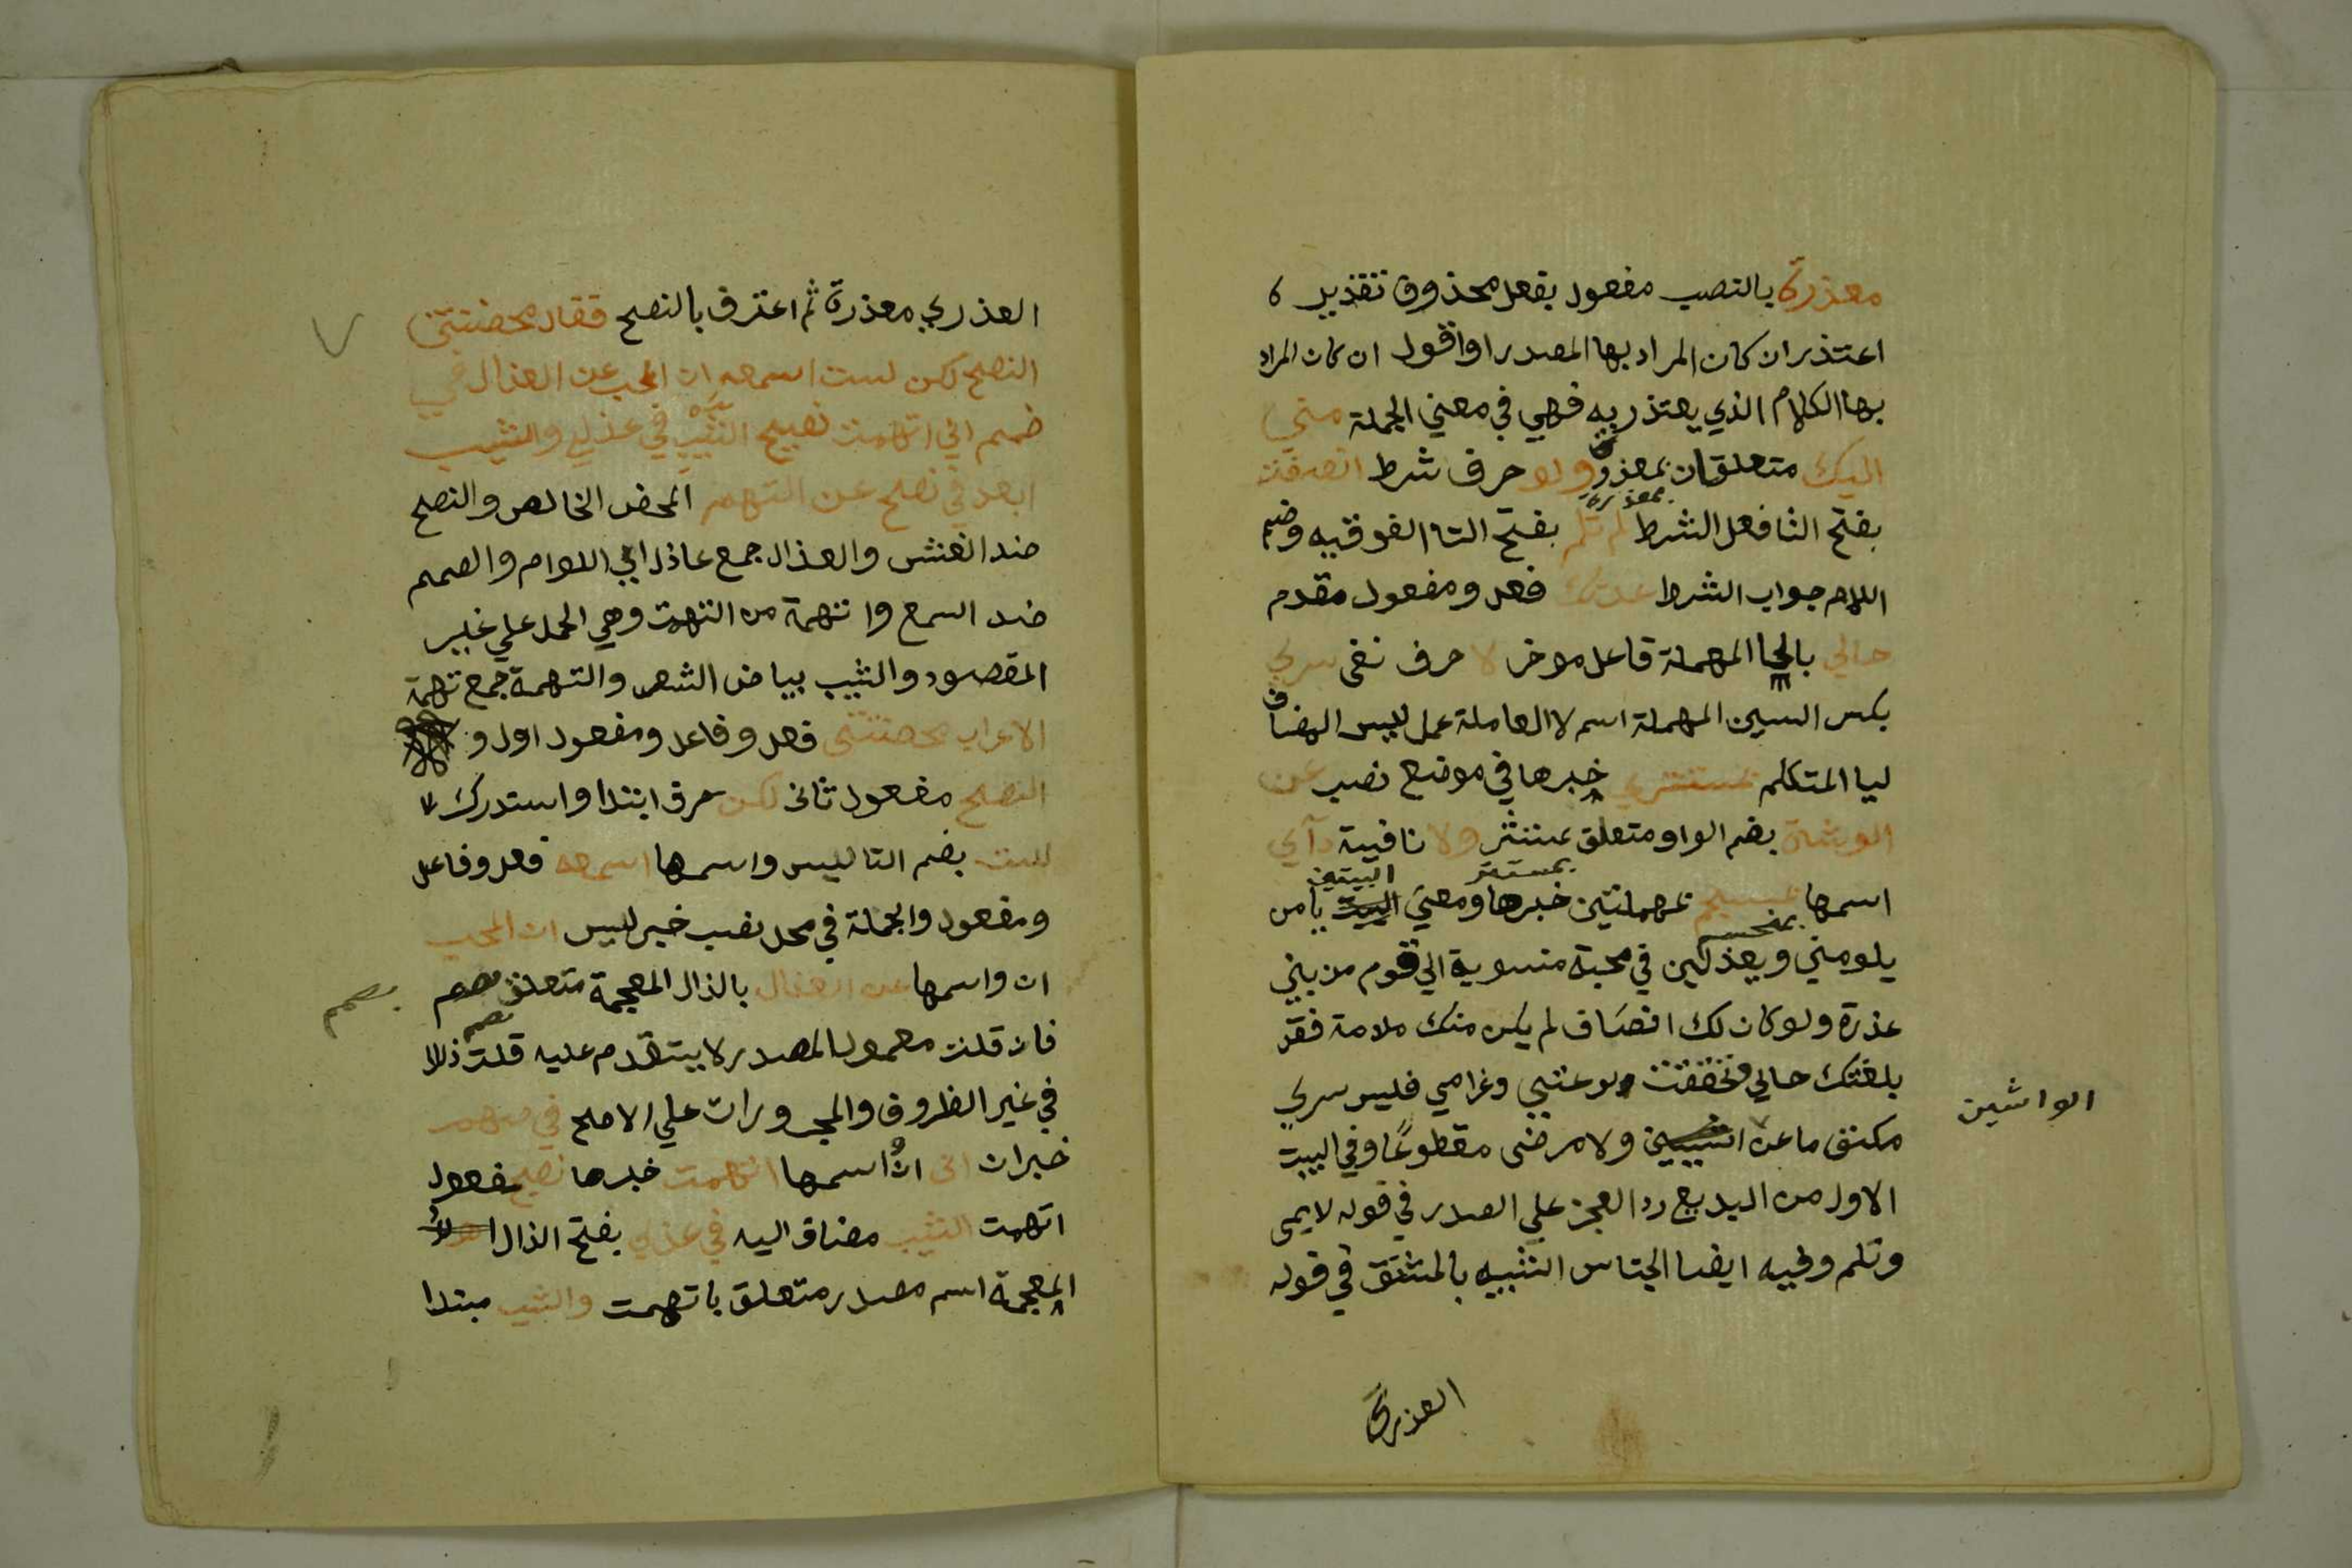 معذرة بالنصب مفعول بفعل محذوف تقديره
اعتذر ان كان المراد بها المصدر او اقول ان كان المراد
بها الكلام الذي يعتذر به فهي في معني الجملة مني
اليك متعلقان بمعذرة ولو حرف شرط انصفت
بمعذرة
بفتح التا فعل الشرط لم تلم بفتح التا الفوقيه وضم
اللام جواب الشرط عدتك فعل ومفعول مقدم
حالي بالحا المهملة فاعل موخر لا حرف نفي سري
بكسر السين المهملة اسم لا العاملة عمل ليس المضاف
ليا المتكلم بمستتر خبرها في موضع نصب عن
الوشاة بضم الواو متعلق بمستتر ولا نافية دآي
بمستتر البيتين
اسمها بمنحسم بمهملتين خبرها ومعني البيت يا من
بمنحسم
يلومني ويعذلني في محبة منسوبة الي قوم من بني
عذرة ولو كان لك انصاف لم يكن منك ملامة فقد
بلغتك حالي وتحققت لوعتي وغرامي فليس سري
الواشين
مكتتما عن ولا مرضي مقطوعًا وفي البيت
الاول من البديع رد العجز علي الصدر في قوله لايمي
وتلم وفيه ايضا الجناس الشبيه بالمشتق في قوله
العذري
العذري معذرة ثم اعترف بالنصح فقال محضتني
النصح لكن لست اسمعه ان المحب عن العذال في
صمم اني اتهمت نصيح الشيب في عذلي والشيب
ابعد في نصح عن التهم المحض الخالص والنصح
ضد الغش والعذال جمع عاذل اي اللوام والصمم
ضد السمع واتهمة من التهمت وهي الحمل علي غير
المقصود والشيب بياض الشعر والتهمة جمع تهمة
الاعراب محضتني فعل وفاعل ومفعول اول و
النصح مفعول ثاني لكن حرف ابتدا واستدراك
لست بضم التا ليس واسمها اسمعه فعل وفاعل
ومفعول والجملة في محل نصب خبر ليس ان المحب
ان واسمها عن العذال بالذال المعجمة متعلق بصمم
بصمم
فان قلت معمول المصدر لا يتقدم عليه قلت ذلك
في غير الظروف والمجرورات علي الاصح في صمم
خبر ان اني ان واسمها اتهمت خبرها نصيح مفعول
اتهمت الشيب مضاف اليه في عذلي بفتح الذال
المعجمة اسم مصدر متعلق باتهمت والشيب مبتدا